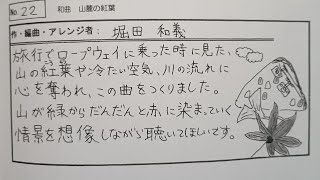 No 22 和曲 山麓の紅葉
作・編曲・アレンジ者: 堀田 和義
旅行でロープウェイに乗った時に見た、
山の紅葉や冷たい空気、川の流れに
心を奪われ、この曲をつくりました。
山が緑からだんだんと赤に染まっていく
情景を想像しながら聴いてほしいです。